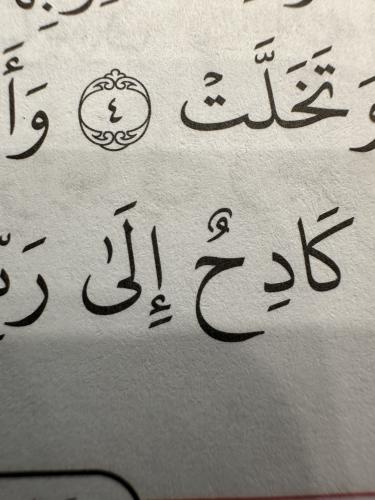 وَتَخَلَّتْ ٤ وَأَ
كَادِحٌ إِلَىٰ رَبِّ